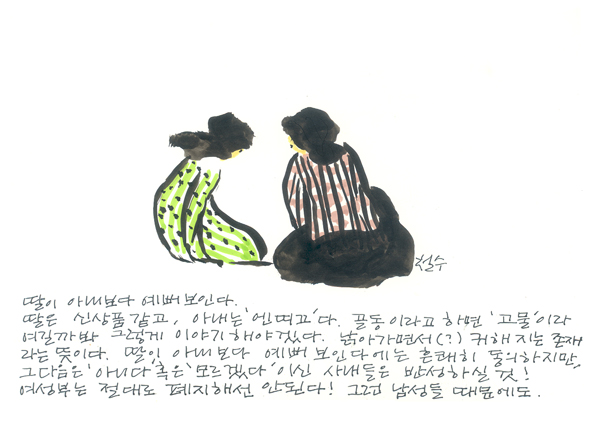 철수
딸이 아내보다 예뻐 보인다.
딸은 신상품 같고, 아내는 '엔띠끄'다. 골동이라고 하면 '고물'이라
여길까봐 그렇게 이야기 해야겠다. 낡아가면서(?) 귀해지는 존재
라는 뜻이다. 딸이 아내보다 예뻐 보인다에는 흔쾌히 동의하지만,
그 다음은 '아니다' 혹은 '모르겠다' 이신 사내들은 반성하실 것!
여성부는 절대로 폐지해선 안된다! 그리고 남성들 때문에도.